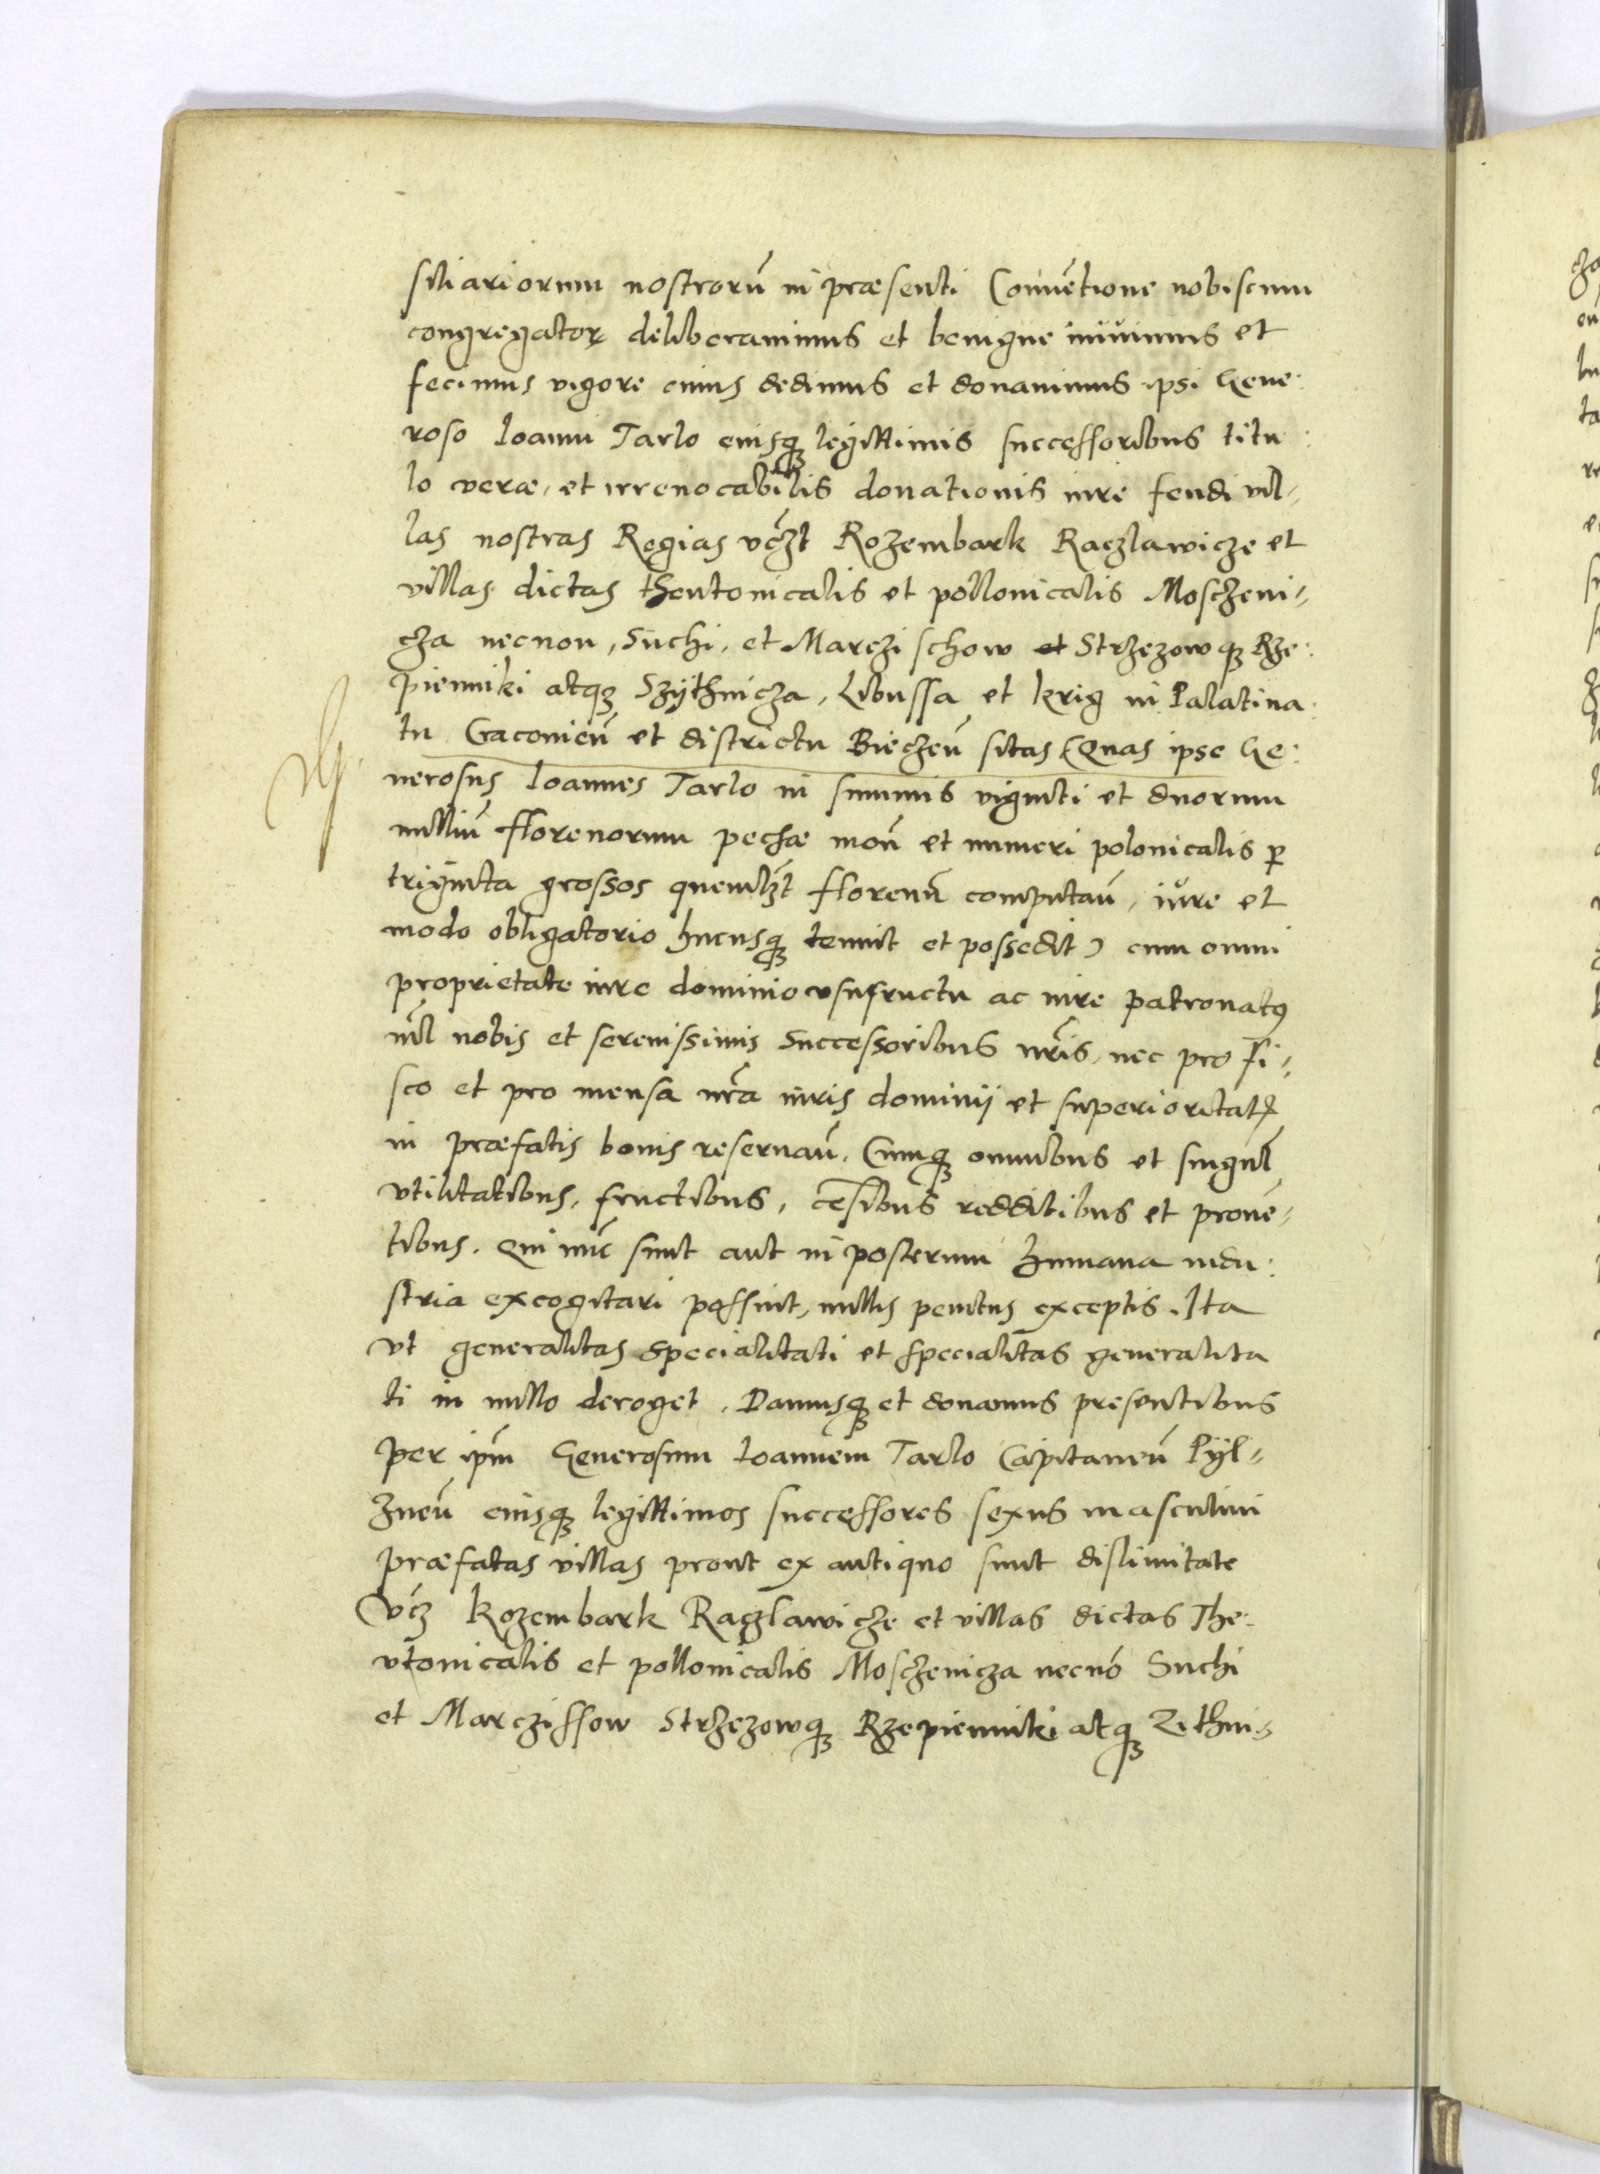 siliariorum nostrorū in præsenti Conuētione nobiscum
congregatoꝝ deliberauimus et benigne iniuimus et
fecimus vigore cuius dedimus et donauimus ipsi Gene:
roso Ioanni Tarlo eiusqꝫ legittimis successoribus titu:
lo veræ, et irreuocabilis donationis iure feudi vil-
las nostras Regias vcꝫt Rozembark Raczlawicze et
villas dictas thentonicalis et pollonicalis Mosczeni-
cza necnon, Suchi, et Marczischow et Strzezowqꝫ Rze:
pienniki atqꝫ Szÿthnicza, Libussa et Krig in Palatina:
tu Cracouieñ et districtu Biecheñ sitas (Quas ipse Ge:
nerosus Ioannes Tarlo in summis viginti et duorum
milliū florenorum pechæ moñ et numeri polonicalis ꝑ
trÿginta grossos quemlꝫt florenū computañ, iure et
modo obligatorio hucusqꝫ tenuit et possedit) cum omni
proprietate iure dominio vsufructu ac iure patronatꝰ
nil nobis et serenissimis Successoribus nr̄is, nec pro fi-
sco et pro mensa nr̄a iuris dominÿ et superioritatꝭ
in præfatis bonis reseruañ. Cumqꝫ omnibus et singul̄
vtilitatibus, fructibus, cēsibus redditibus et prouē-
tibus. qui nūc sunt aut in posterum humana indu:
stria excogitari possint, nullis penitus exceptis. Ita
vt generalitas specialitati et specialitas generalita
ti in nullo deroget, Damusqꝫ et donamus presentibus
per ipm̄ Generosum Ioannem Tarlo Capitaneū Pÿl-
zneñ eiusqꝫ legittimos successores sexus masculini
præfatas villas prout ex antiquo sunt dislimitate
vcꝫ Rozembark Raczlawicze et villas dictas The-
vtonicalis et pollonicalis Mosczenicza necnō Suchi
et Marczissow Strzezowqꝫ Rzepienniki atqꝫ Zithni-